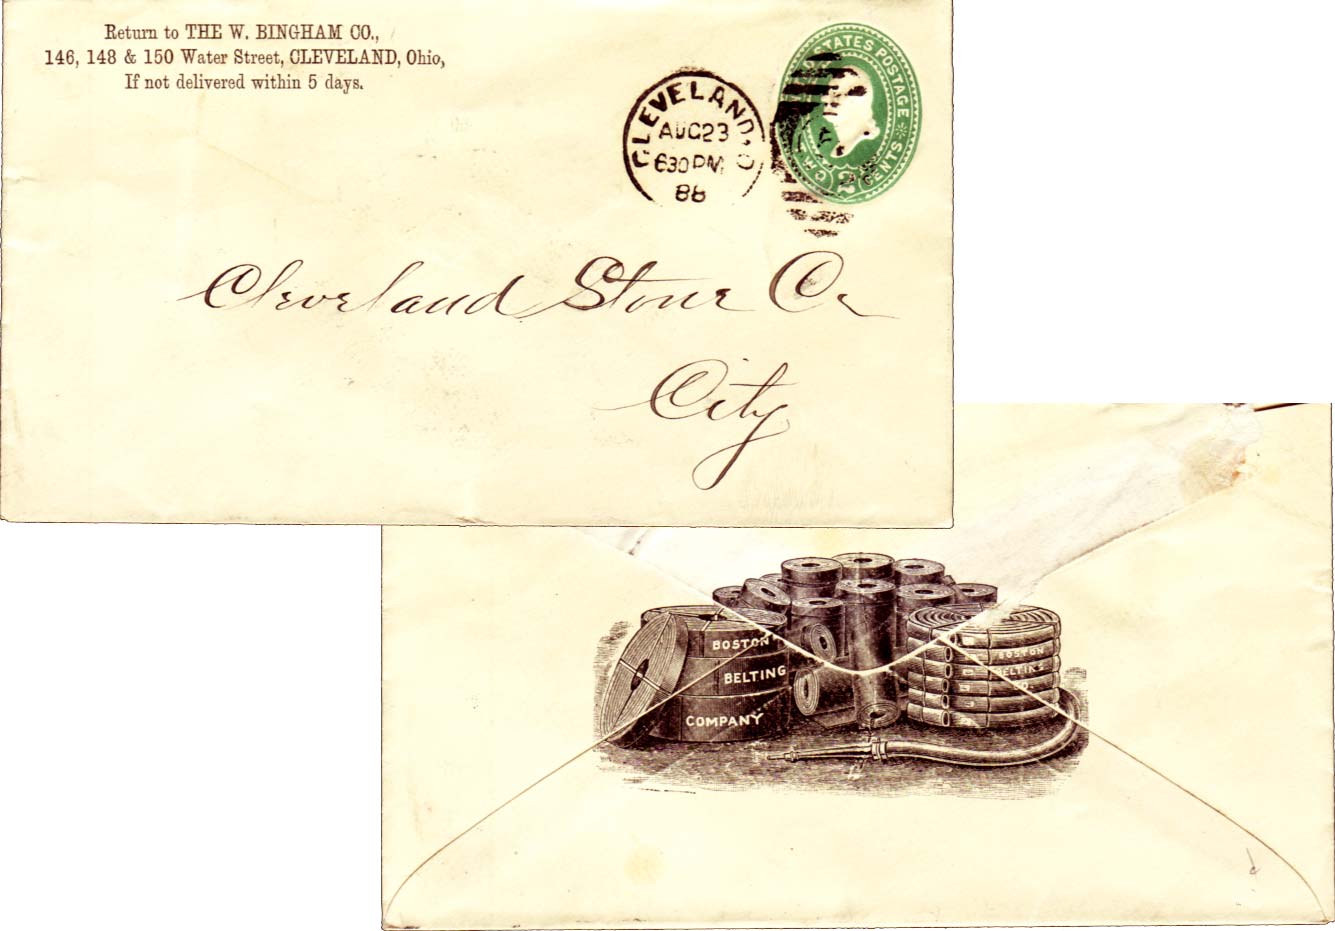 Return to THE W. BINGHAM CO.,
146, 148 & 150 Water Street, CLEVELAND, Ohio,
If not delivered within 5 days.
CLEVELAND, O
AUG 23
630 PM
88
UNITED STATES POSTAGE
TWO 2 CENTS
Cleveland Stone Co
City
BOSTON
BELTING
COMPANY
BOSTON
BELTING
CO